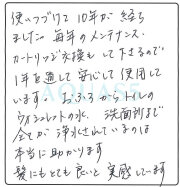 使いつづけて10年が経ち
ました 毎年のメンテナンス・
カートリッジ交換もして下さるので
1年を通して安心して使用して
います。おふろからトイレの
ウォシュレットの水、洗面所まで
全てが浄水されているのは
本当に助かります
髪にもとても良いと実感しています